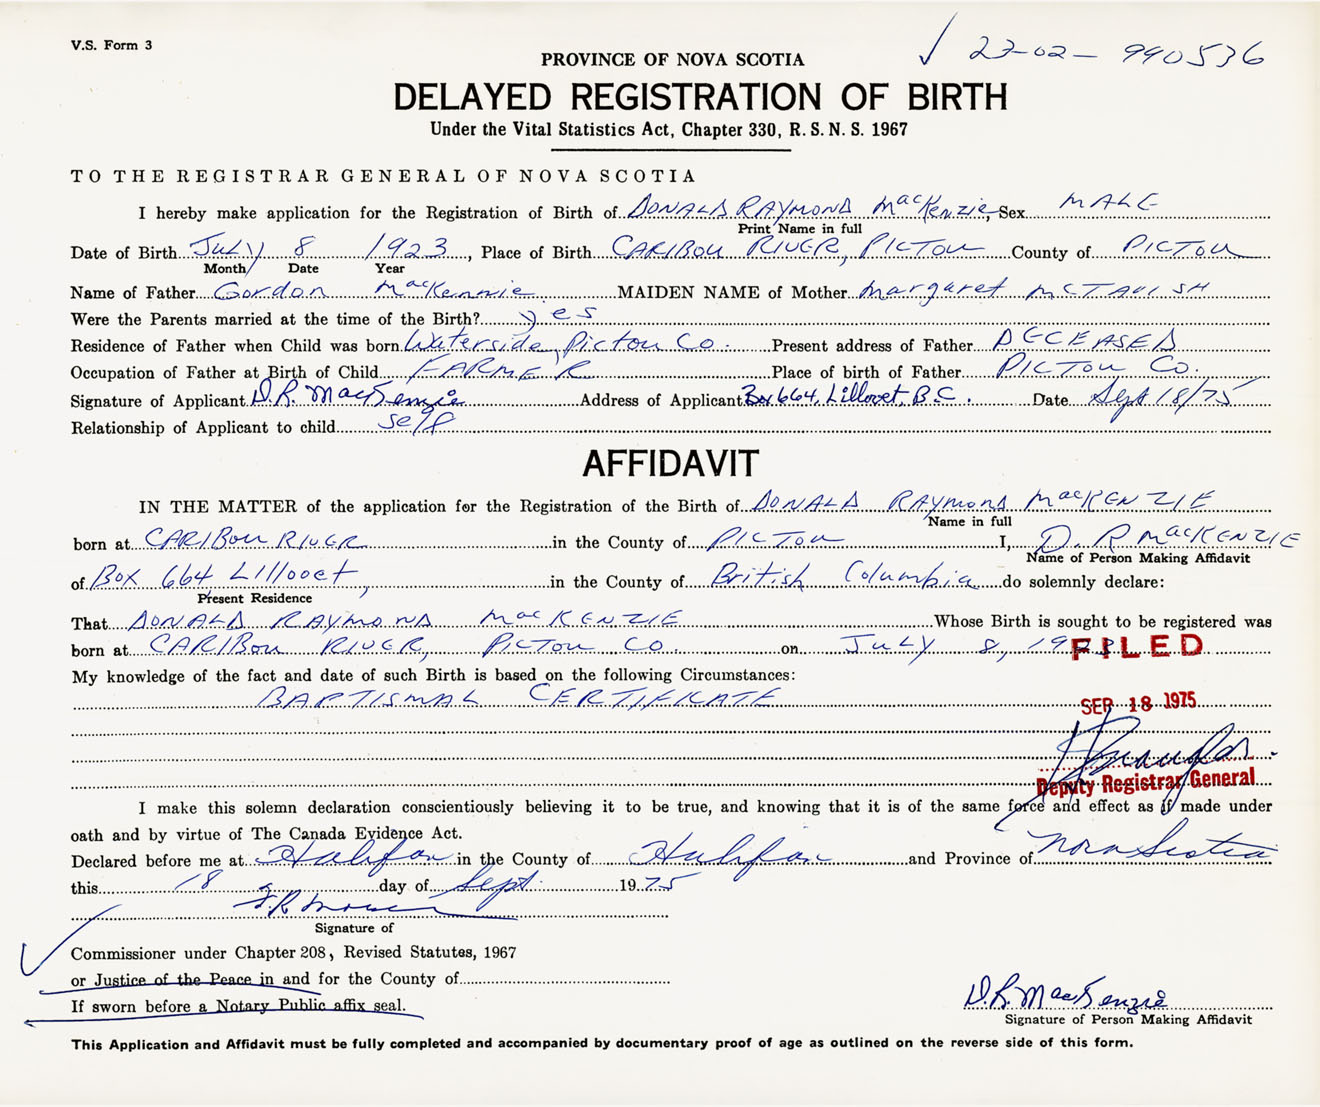 V.S. Form 3
✓ 23-02- 990536
PROVINCE OF NOVA SCOTIA
DELAYED REGISTRATION OF BIRTH
Under the Vital Statistics Act, Chapter 330, R. S. N. S. 1967
TO THE REGISTRAR GENERAL OF NOVA SCOTIA
I hereby make application for the Registration of Birth of DONALD RAYMOND MacKenzie, Sex MALE
Print Name in full
Date of Birth July 8 1923, Place of Birth CARIBOU RIVER, PICTOU County of PICTOU
Month Date Year
Name of Father Gordon MacKenzie MAIDEN NAME of Mother Margaret McTAVISH
Were the Parents married at the time of the Birth? yes
Residence of Father when Child was born Waterside, Pictou Co. Present address of Father DECEASED
Occupation of Father at Birth of Child FARMER Place of birth of Father PICTOU Co.
Signature of Applicant D.R. MacKenzie Address of Applicant Box 664, Lillooet, B.C. Date Sept 18/75
Relationship of Applicant to child self
AFFIDAVIT
IN THE MATTER of the application for the Registration of the Birth of DONALD RAYMOND MacKENZIE
Name in full
born at CARIBOU RIVER in the County of PICTOU I, D. R MacKENZIE
Name of Person Making Affidavit
of Box 664 Lillooet, in the County of British Columbia do solemnly declare:
Present Residence
That DONALD RAYMOND MacKENZIE Whose Birth is sought to be registered was
born at CARIBOU RIVER, PICTOU CO on JULY 8, 1923
FILED
My knowledge of the fact and date of such Birth is based on the following Circumstances:
BAPTISMAL CERTIFICATE
SEP 18 1975
Deputy Registrar General
I make this solemn declaration conscientiously believing it to be true, and knowing that it is of the same force and effect as if made under
oath and by virtue of The Canada Evidence Act.
Declared before me at Halifax in the County of Halifax and Province of Nova Scotia
this 18 day of Sept. 1975
Signature of
Commissioner under Chapter 208, Revised Statutes, 1967
or Justice of the Peace in and for the County of
If sworn before a Notary Public affix seal.
D.R. MacKenzie
Signature of Person Making Affidavit
This Application and Affidavit must be fully completed and accompanied by documentary proof of age as outlined on the reverse side of this form.